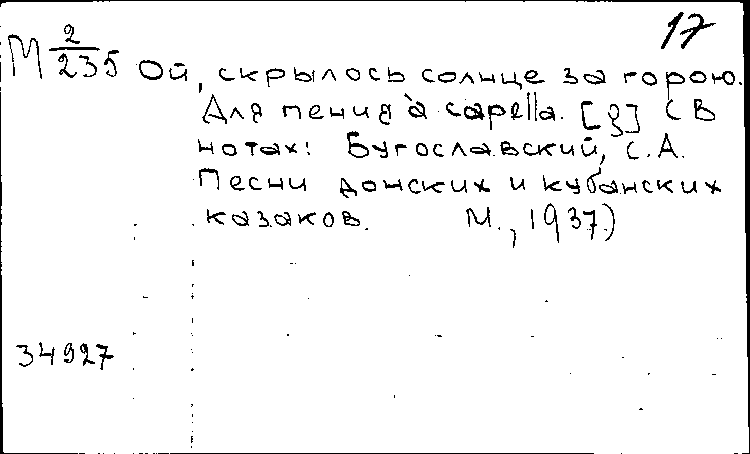 17
М 2/235 Ой, скрылось солнце за горою.
Для пения à capella. [3] (В
нотах: Бугославский, С.А.
Песни донских и кубанских
казаков. М., 1937)
34927